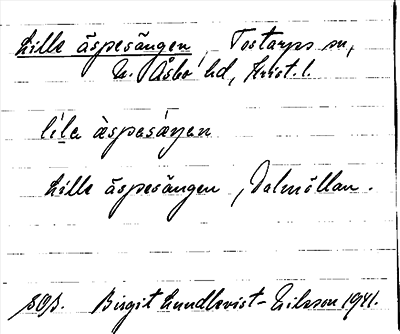 Lilla äspesängen, Tostarps sn,
N. Åsbo hd, Krist. l.
lila äspesäŋen
Lilla äspesängen, Dalmöllan.
Birgit Lundkvist-Nilsson 1941.